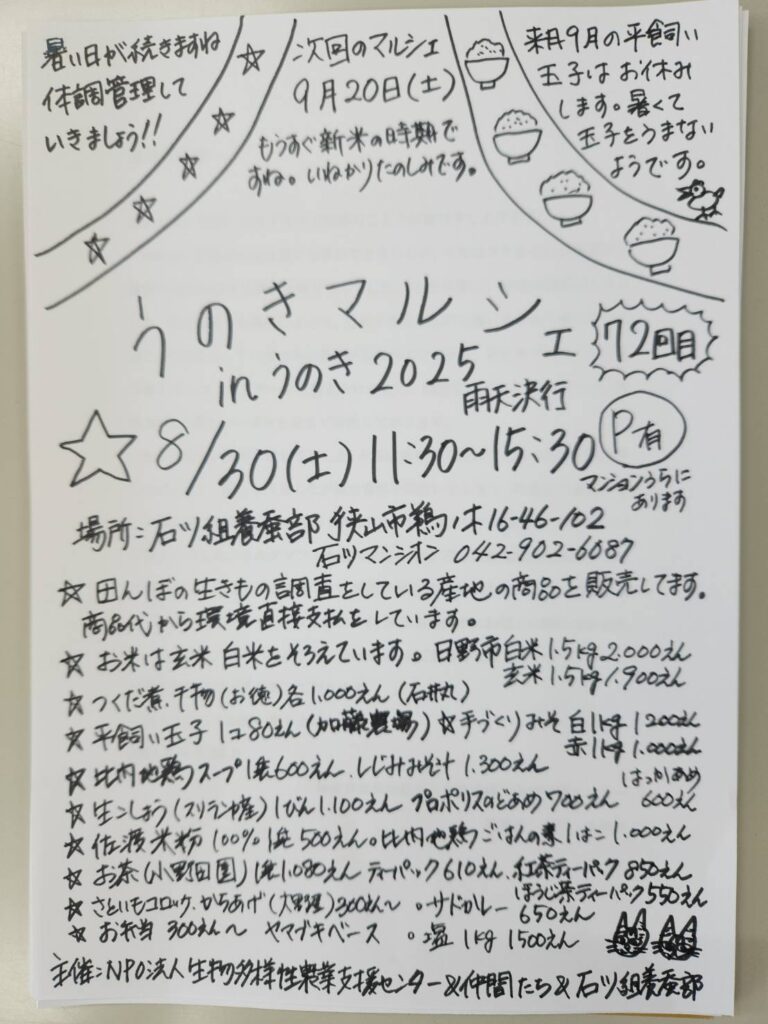 暑い日が続きますね
体調管理して
いきましょう!!
次回のマルシェ
9月20日(土)
もうすぐ新米の時期で
すね。いねかりたのしみです。
来月9月の平飼い
玉子はお休み
します。暑くて
玉子をうまない
ようです。
うのきマルシェ
in うのき 2025
72回目
雨天決行
☆ 8/30(土) 11:30〜15:30
P有
マンションうらに
あります
場所:石ツ組養蚕部 狭山市鵜ノ木16-46-102
石ツマンシオン 042-902-6087
☆ 田んぼの生きもの調査をしている産地の商品を販売してます。
商品代から環境直接支払をしています。
☆ お米は玄米 白米をそろえています。日野市白米1.5kg 2.000えん
玄米1.5kg 1.900えん
☆ つくだ煮、干物(お徳)各1.000えん (石井丸)
☆ 平飼い玉子 1コ80えん(加藤農場) ☆手づくりみそ 白1kg 1200えん
赤1kg 1.000えん
☆ 比内地鶏スープ1袋600えん、しじみみそ汁 1.300えん
はっかあめ
600えん
☆ 生こしょう(スリランカ産)1びん1.100えん プロポリスのどあめ700えん
☆ 佐渡米粉 100% 1袋500えん。比内地鶏ごはんの素1はこ1.000えん
☆ お茶(小野田園)1袋1.080えん ティーパック610えん、紅茶ティーパック850えん
ほうじ茶ティーパック550えん
☆ さといもコロッケ、からあげ(大野屋)300えん〜 。サドカレー 650えん
☆ お弁当 300えん〜 ヤマブキベース 。塩1kg 1500えん
主催:NPO法人生物多様性農業支援センター&仲間たち&石ツ組養蚕部